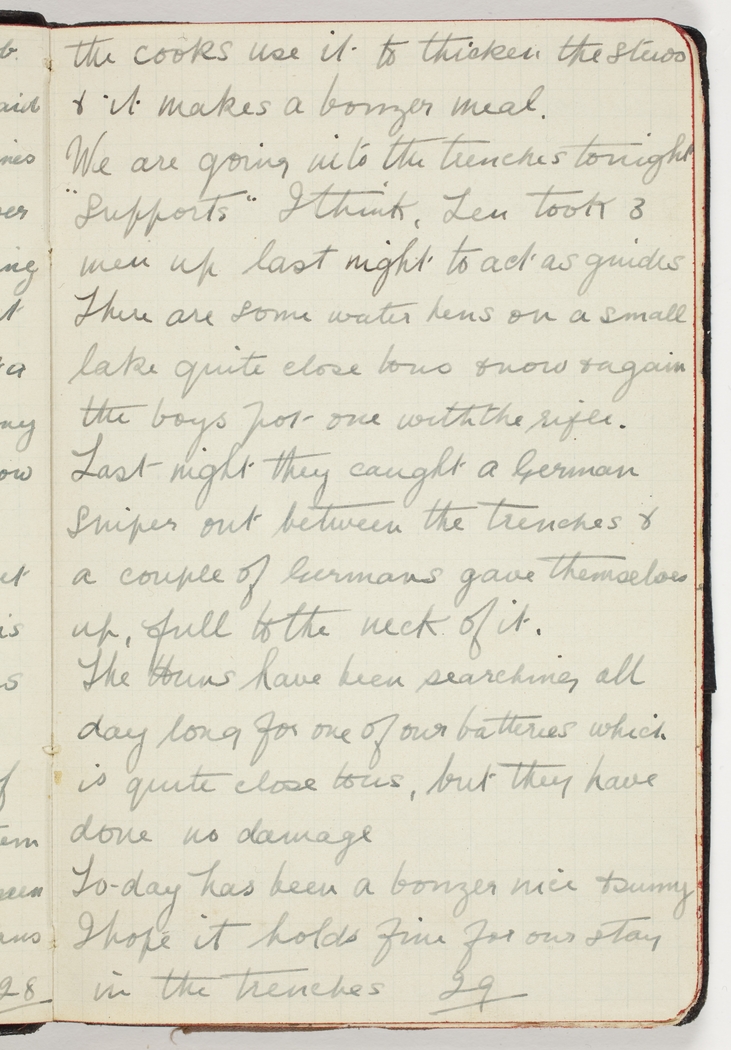 the cooks use it to thicken the stews
& it makes a bonzer meal.
We are going into the trenches tonight
"Supports" I think, Len took 3
men up last night to act as guides
There are some water hens on a small
lake quite close to us & now & again
the boys pot one with the rifle.
Last night they caught a German
Sniper out between the trenches &
a couple of Germans gave themselves
up, full to the neck of it.
The Huns have been searching all
day long for one of our batteries which
is quite close to us, but they have
done no damage
To-day has been a bonzer nice & sunny
I hope it holds fine for our stay
in the trenches 29
28